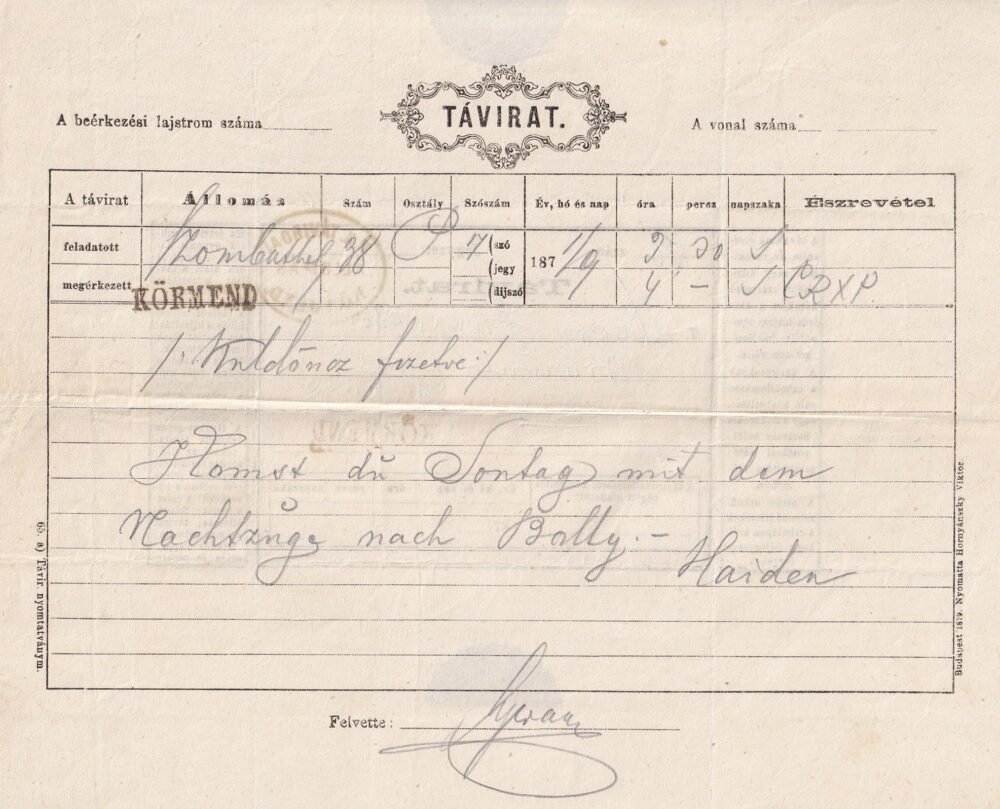 TÁVIRAT.
A beérkezési lajstrom száma
A vonal száma
A távirat Állomás Szám Osztály Szószám Év, hó és nap óra percz napszaka Észrevétel
feladatott Szombathely 38 P 7 (szó 187 1/9 3 30
(jegy
megérkezett KÖRMEND (díjszó /9 4 – RXP.
/: Küldöncz fizetve :/
Komst dŭ Sontag mit dem
Nachtzŭge nach Bally. –
Haiden
Felvette:
65. a) Távir. nyomtatványm.
Budapest 1879. Nyomatta Hornyánszky Viktor